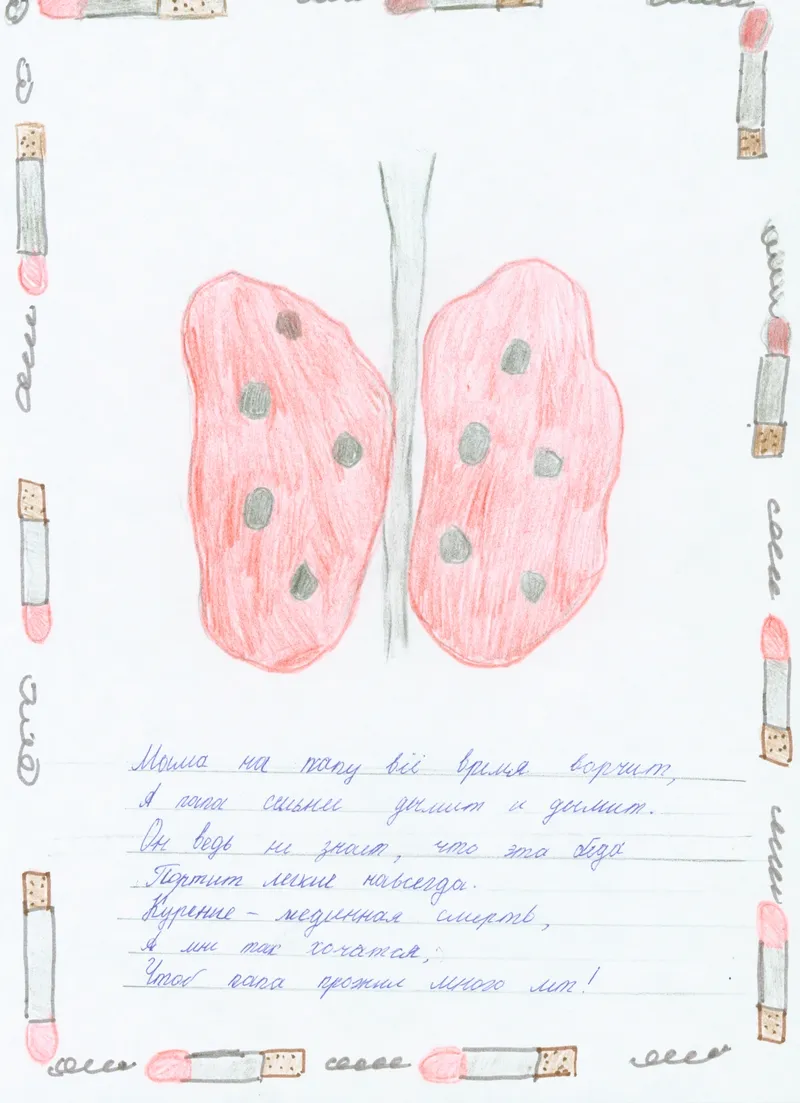 Мама на папу всё время ворчит,
А папа сильнее дымит и дымит.
Он ведь не знает, что эта беда
Портит легкие навсегда.
Курение – медленная смерть,
А мне так хочатся,
Чтоб папа прожил много лет!